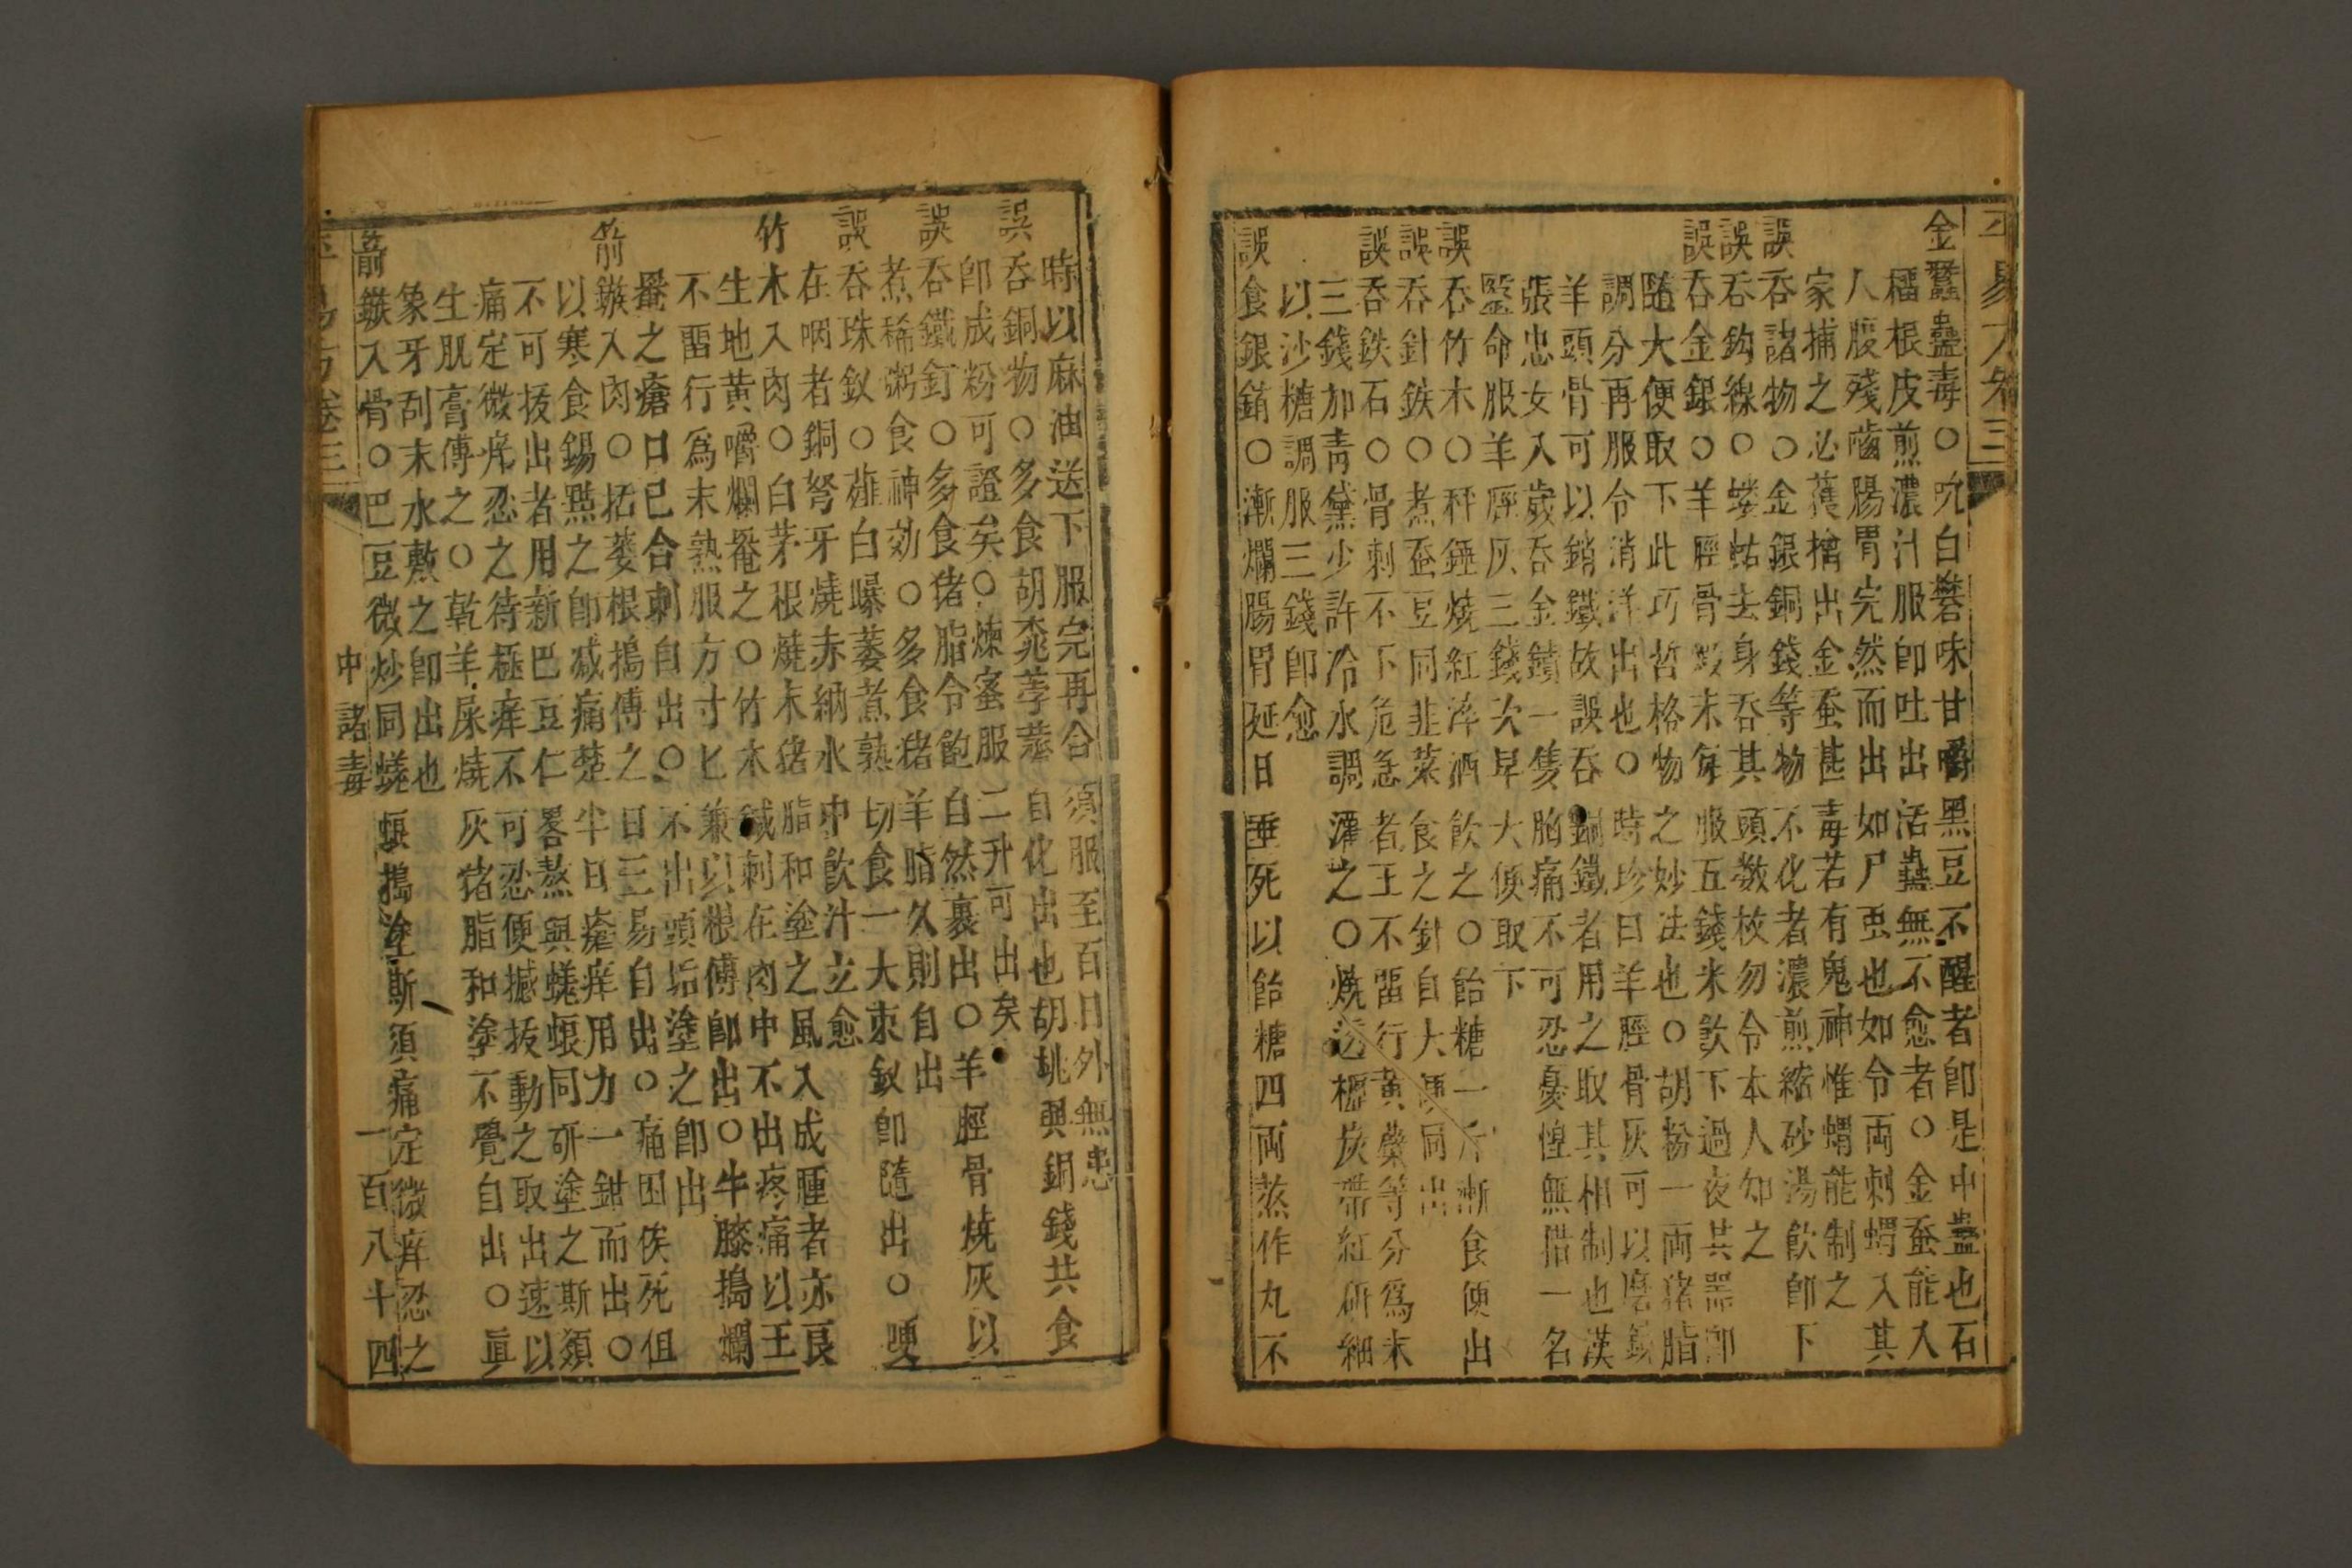 平易方卷三
金蠶蠱毒○吮白礬味甘嚼黑豆不腥者即是中蠱也石
榴根皮煎濃汁服即吐出活蟲無不愈者○金蚕能入
人腹殘嚙腸胃完然而出如尸虫也如令両刺蝟入其
家捕之必獲擒出金蚕甚毒若有鬼神惟蝟能制之
誤吞諸物○金銀銅錢等物不化者濃煎縮砂湯飲即下
誤吞鈎線○螻蛄去身吞其頭数枚勿令本人知之
誤吞金銀○羊脛骨煅末每服五錢米飲下過夜其器即
隨大便取下此巧哲格物之妙法也○胡粉一両猪脂
調分再服令消洋出也○時珍曰羊脛骨灰可以磨鏡
羊頭骨可以銷鐵故誤吞銅鐵者用之取其相制也漢
張忠女入歲吞金鐼一隻胸痛不可忍憂惶無措一名
醫命服羊脛灰三錢次早大便取下
誤吞竹木○秤錘燒紅淬酒飲之○飴糖一斤漸食便出
誤吞針鉄○煮蚕豆同韭菜食之針自大便同出
誤吞鉄石○骨刺不下危急者王不畱行黄蘗等分爲末
三錢加青黛少許冷水調灌之○燒透櫪炭帶紅研細
以沙糖調服三錢即愈
誤食銀銷○漸爛腸胃延日垂死以飴糖四両蒸作丸不
時以麻油送下服完再合須服至百日外無患
誤吞銅物○多食胡桃荸薺自化出也胡桃與銅錢共食
即成粉可證矣○煉蜜服二升可出矣
誤吞鐵釘○多食猪脂令飽自然裹出○羊脛骨燒灰以
煮稀粥食神効○多食猪羊脂久則自出
誤吞珠釵○薤白曝萎煮熟切食一大束釵即隨出○哽
在咽者銅弩牙燒赤納水中飲汁立愈
竹木入肉○白茅根燒末猪脂和塗之風入成腫者亦良
生地黄嚼爛罨之○竹木鍼刺在肉中不出疼痛以王
不畱行爲末熟服方寸匕兼以根傅即出○牛膝搗爛
罨之瘡口已合刺自出○不出頭垢塗之即出
箭鏃入肉○括蔞根搗傅之日三易自出○痛困俟死但
以寒食錫點之即减痛楚半日瘡痒用力一鉗而出○
不可抜出者用新巴豆仁畧熬與蜣蜋同研塗之斯須
痛定微痒忍之待極痒不可忍便撼抜動之取出速以
生肌膏傅之○乾羊屎燒灰猪脂和塗不覺自出○眞
象牙刮末水敷之即出也
箭鏃入骨○巴豆微炒同蜣蜋搗塗斯須痛定微痒忍之
平易方卷三 中諸毒 一百八十四